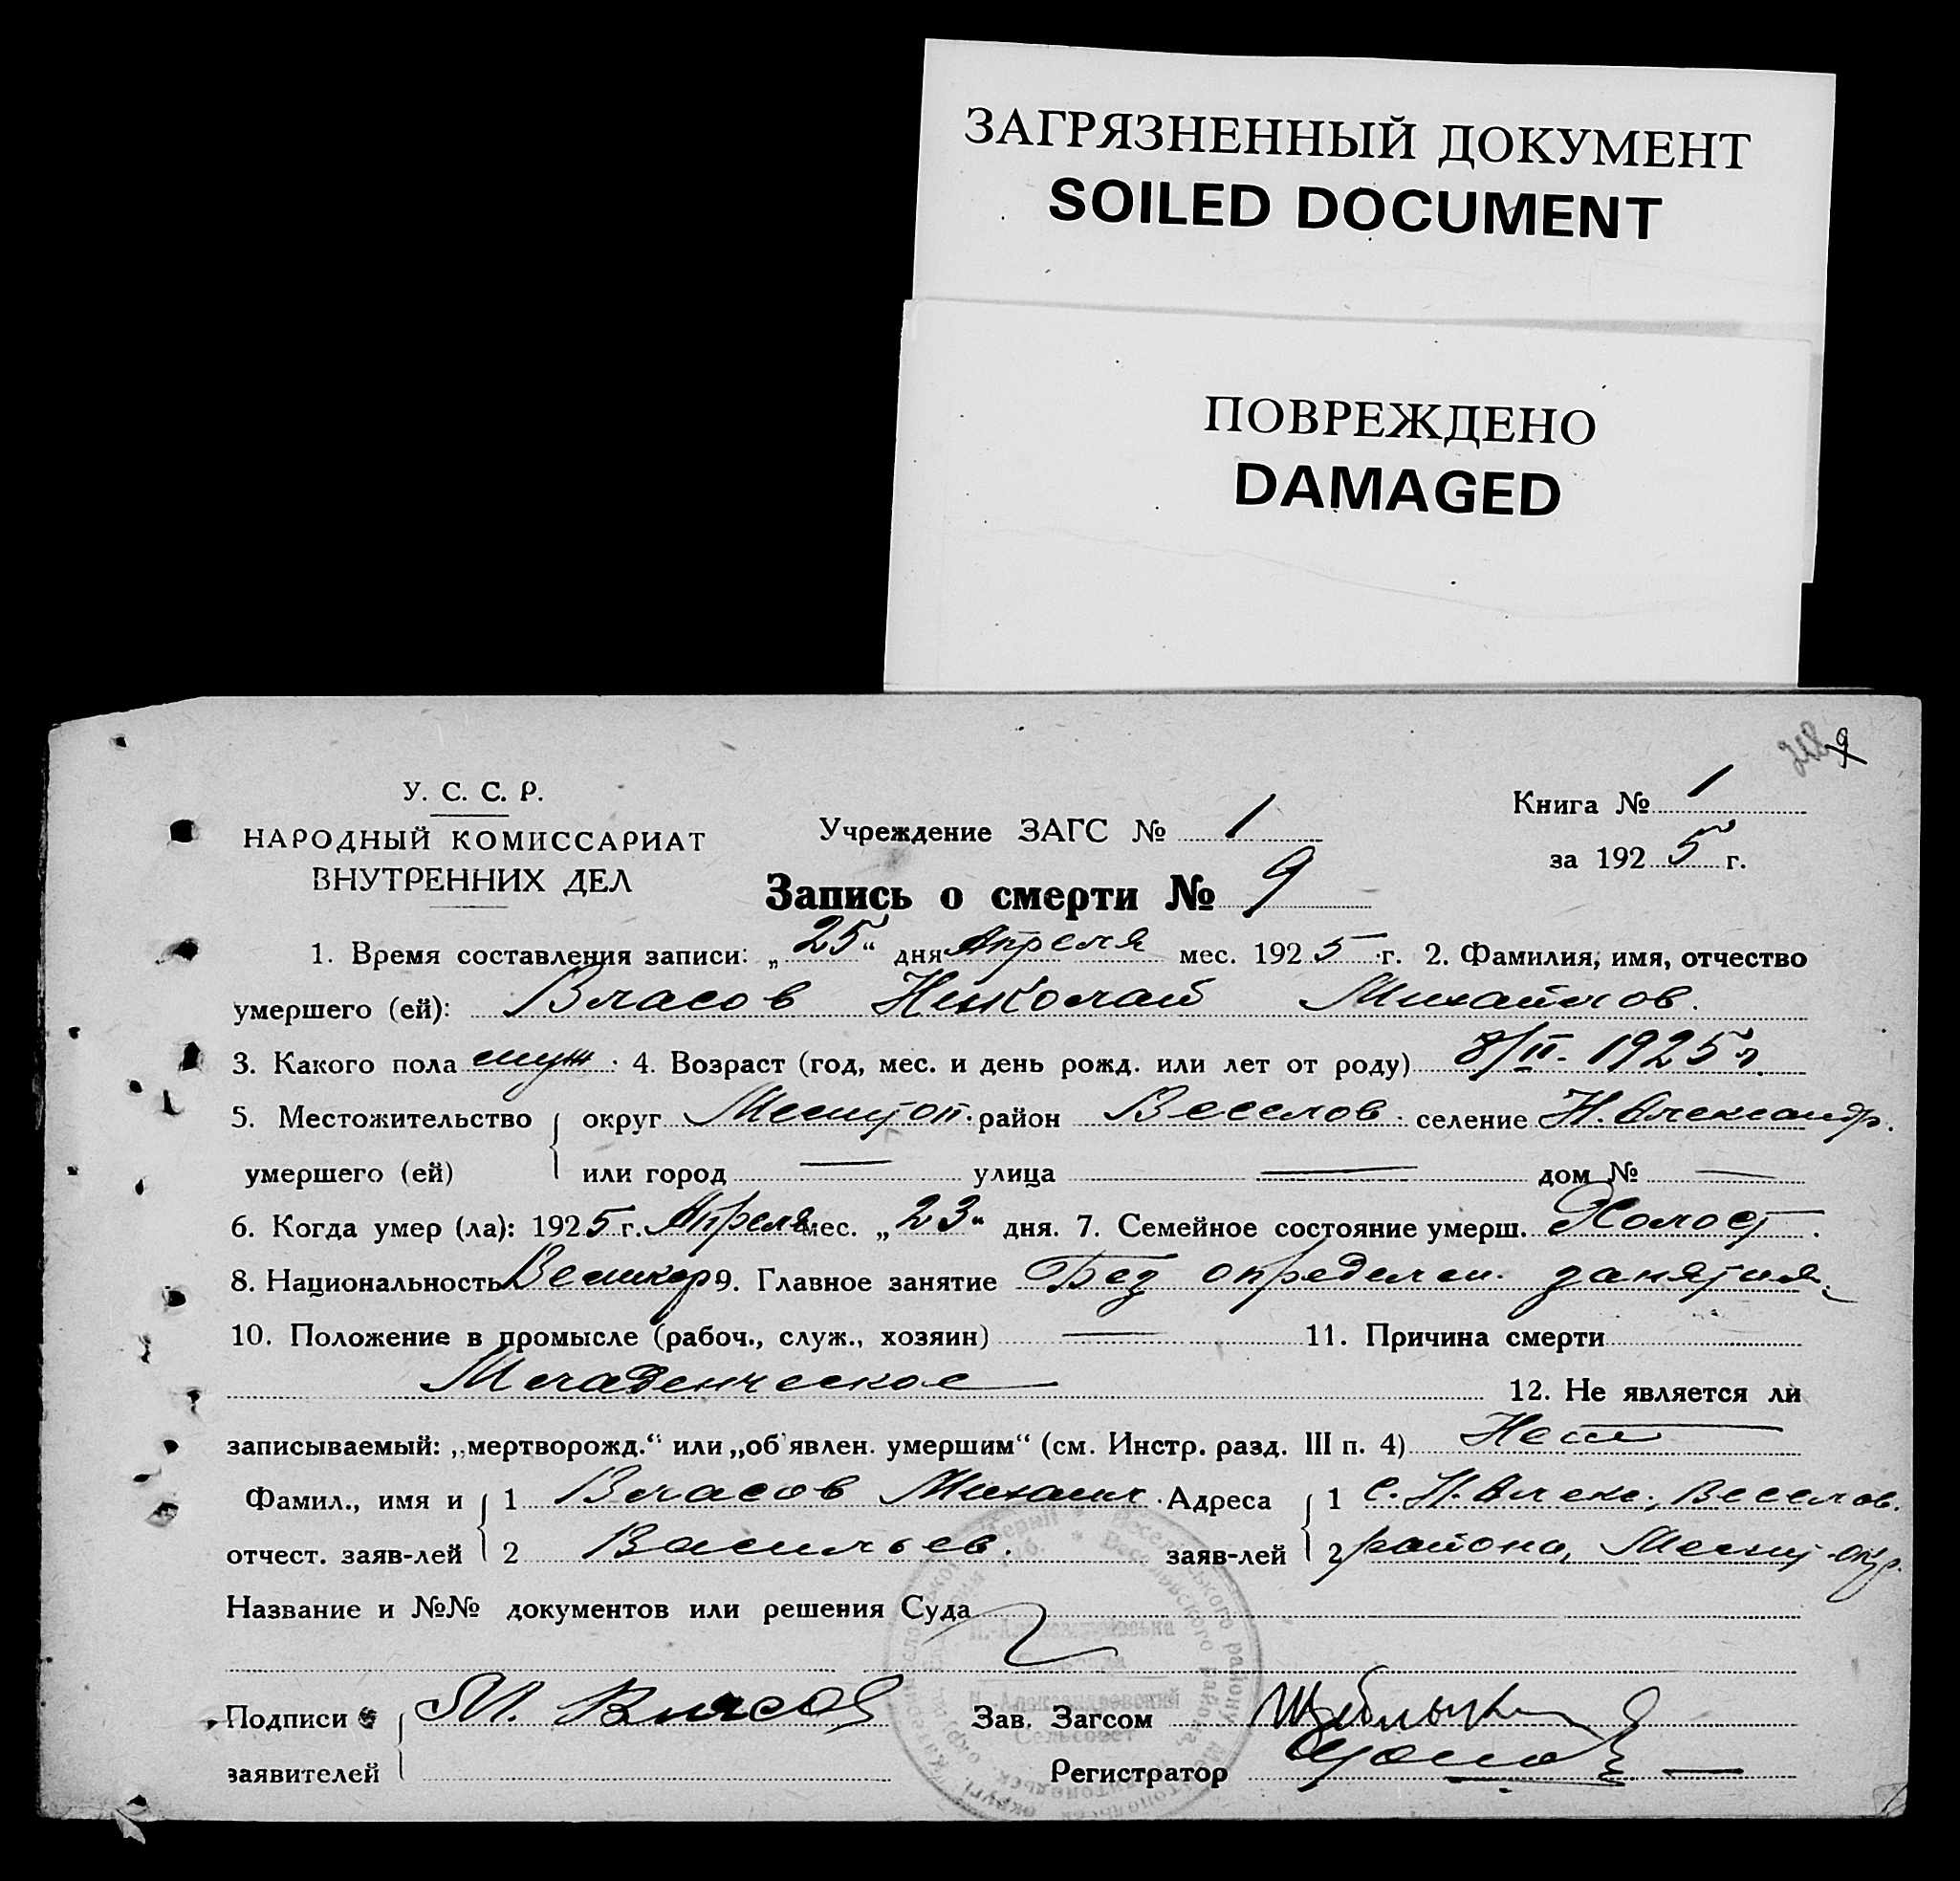 ЗАГРЯЗНЕННЫЙ ДОКУМЕНТ
SOILED DOCUMENT
ПОВРЕЖДЕНО
DAMAGED
9
У. С. С. Р.
НАРОДНЫЙ КОМИССАРИАТ
ВНУТРЕННИХ ДЕЛ
Учреждение ЗАГС № 1
Книга № 1
за 1925 г.
Запись о смерти № 9
1. Время составления записи: „25“ дня Апреля мес. 1925 г. 2. Фамилия, имя, отчество
умершего (ей): Власов Николай Михайлов.
3. Какого пола муж. 4. Возраст (год, мес. и день рожд. или лет от роду) 8/II. 1925 г.
5. Местожительство округ Мелитоп. район Веселов. селение Н. Александр.
умершего (ей) или город — улица — дом № —
6. Когда умер (ла): 1925 г. Апреля мес. „23“ дня. 7. Семейное состояние умерш. Холост.
8. Национальность Великор 9. Главное занятие Без определен. занятия.
10. Положение в промысле (рабоч., служ., хозяин) — 11. Причина смерти
Младенческое 12. Не является ли
записываемый: „мертворожд.“ или „об'явлен. умершим“ (см. Инстр. разд. III п. 4) Нет
Фамил., имя и 1 Власов Михаил. Адреса 1 с. Н. Алекс., Веселов.
отчест. заяв-лей 2 Васильев. заяв-лей 2 района, Мелит. окр.
Название и №№ документов или решения Суда
Подписи М. Власов Зав. Загсом
заявителей Регистратор
Н.-Александровский
Сельсовет